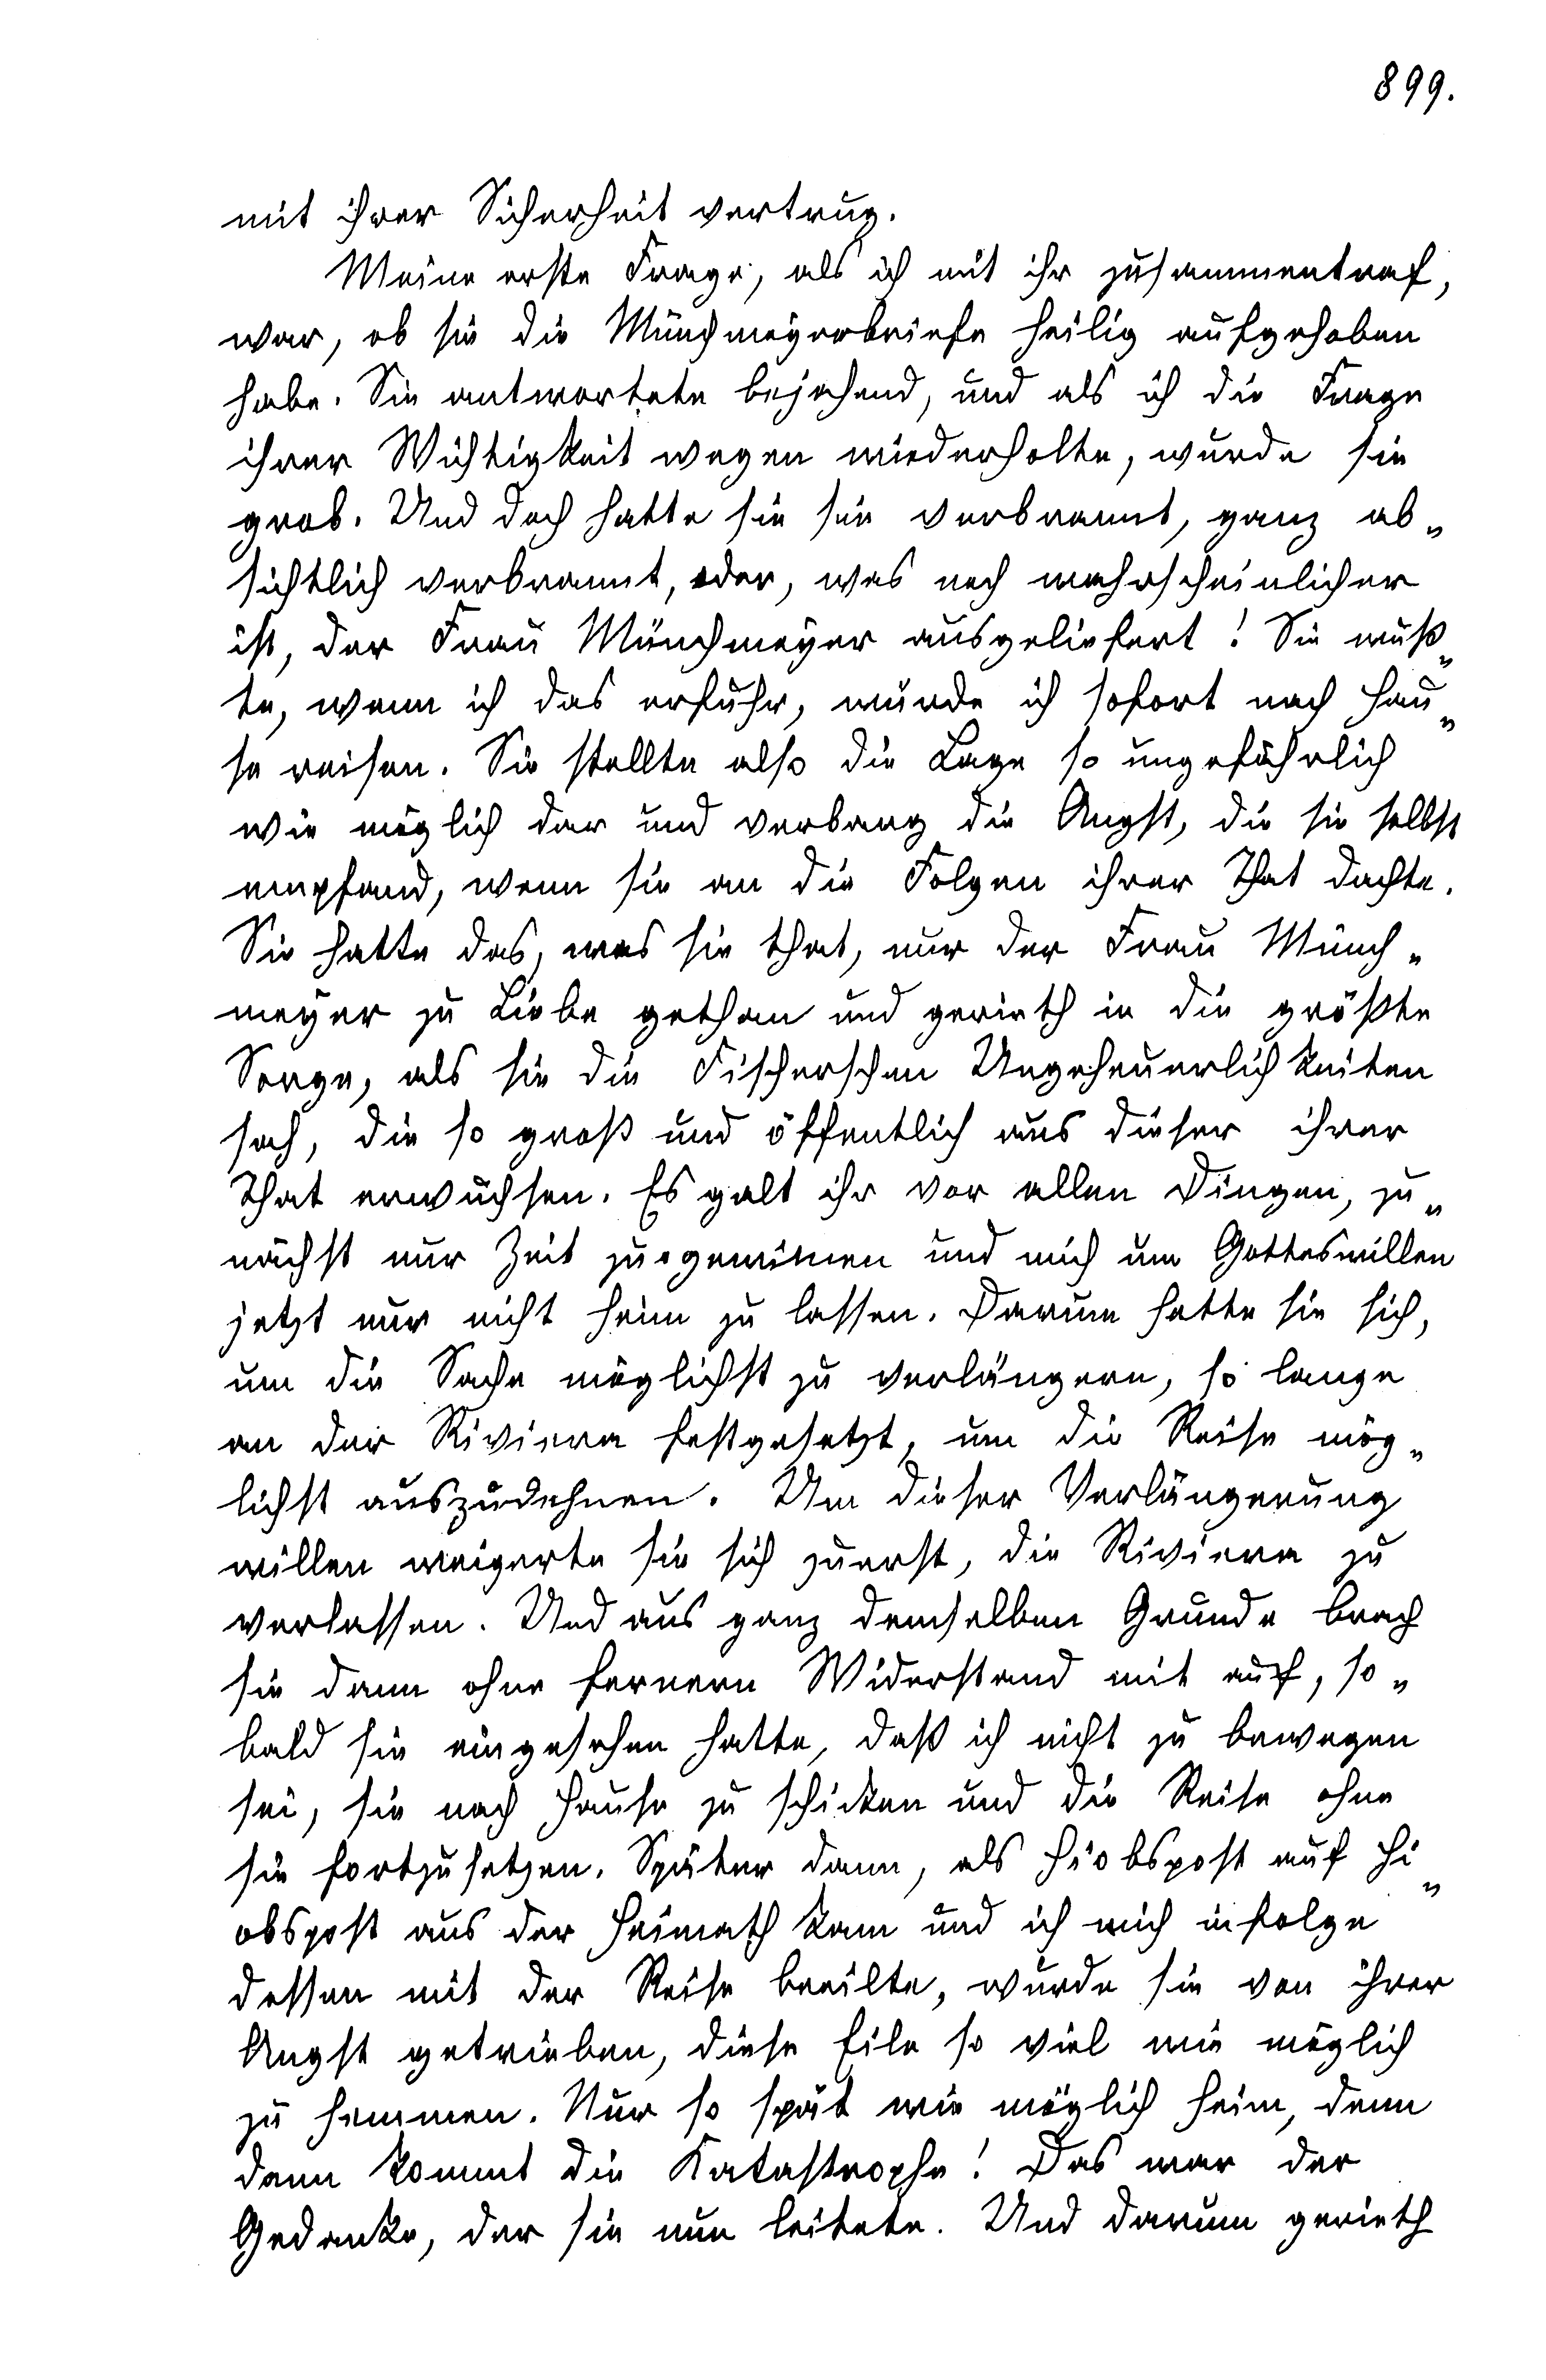 899.
mit ihrer Sicherheit vertrug.
Meine erste Frage, als ich mit ihr zusammentraf,
war, ob sie die Münchmeyerbriefe heilig aufgehoben
habe. Sie antwortete bejahend, und als ich die Frage
ihrer Wichtigkeit wegen wiederholte, wurde sie
grob. Und doch hatte sie sie verbrannt, ganz ab-
sichtlich verbrannt, oder, was noch wahrscheinlicher
ist, der Frau Münchmeyer ausgeliefert! Sie wuß-
te, wenn ich das erfuhr, würde ich sofort nach Hau-
se reisen. Sie stellte also die Lage so ungefährlich
wie möglich dar und verbarg die Angst, die sie selbst
empfand, wenn sie an die Folgen ihrer That dachte.
Sie hatte das, was sie that, nur der Frau Münch-
meyer zu Liebe gethan und gerieth in die größte
Sorge, als sie die Fischerschen Ungeheuerlichkeiten
sah, die so groß und öffentlich aus dieser ihrer
That erwuchsen. Es galt ihr vor allen Dingen, zu-
nächst nur Zeit zu gewinnen und mich um Gotteswillen
jetzt nur nicht heim zu lassen. Darum hatte sie sich,
um die Sache möglichst zu verlängern, so lange
an der Riviera festgesetzt, um die Reise mög-
lichst auszudehnen. Um dieser Verlängerung
willen weigerte sie sich zuerst, die Riviera zu
verlassen. Und aus ganz demselben Grunde brach
sie dann ohne fernern Widerstand mit auf, so-
bald sie eingesehen hatte, daß ich nicht zu bewegen
sei, sie nach Hause zu schicken und die Reise ohne
sie fortzusetzen. Später dann, als Hiobspost auf Hi-
obspost aus der Heimath kam und ich mich infolge
dessen mit der Reise beeilte, wurde sie von ihrer
Angst getrieben, diese Eile so viel wie möglich
zu hemmen. Nur so spät wie möglich heim, denn
dann kommt die Katastrophe! Das war der
Gedanke, der sie nun leitete. Und darum gerieth